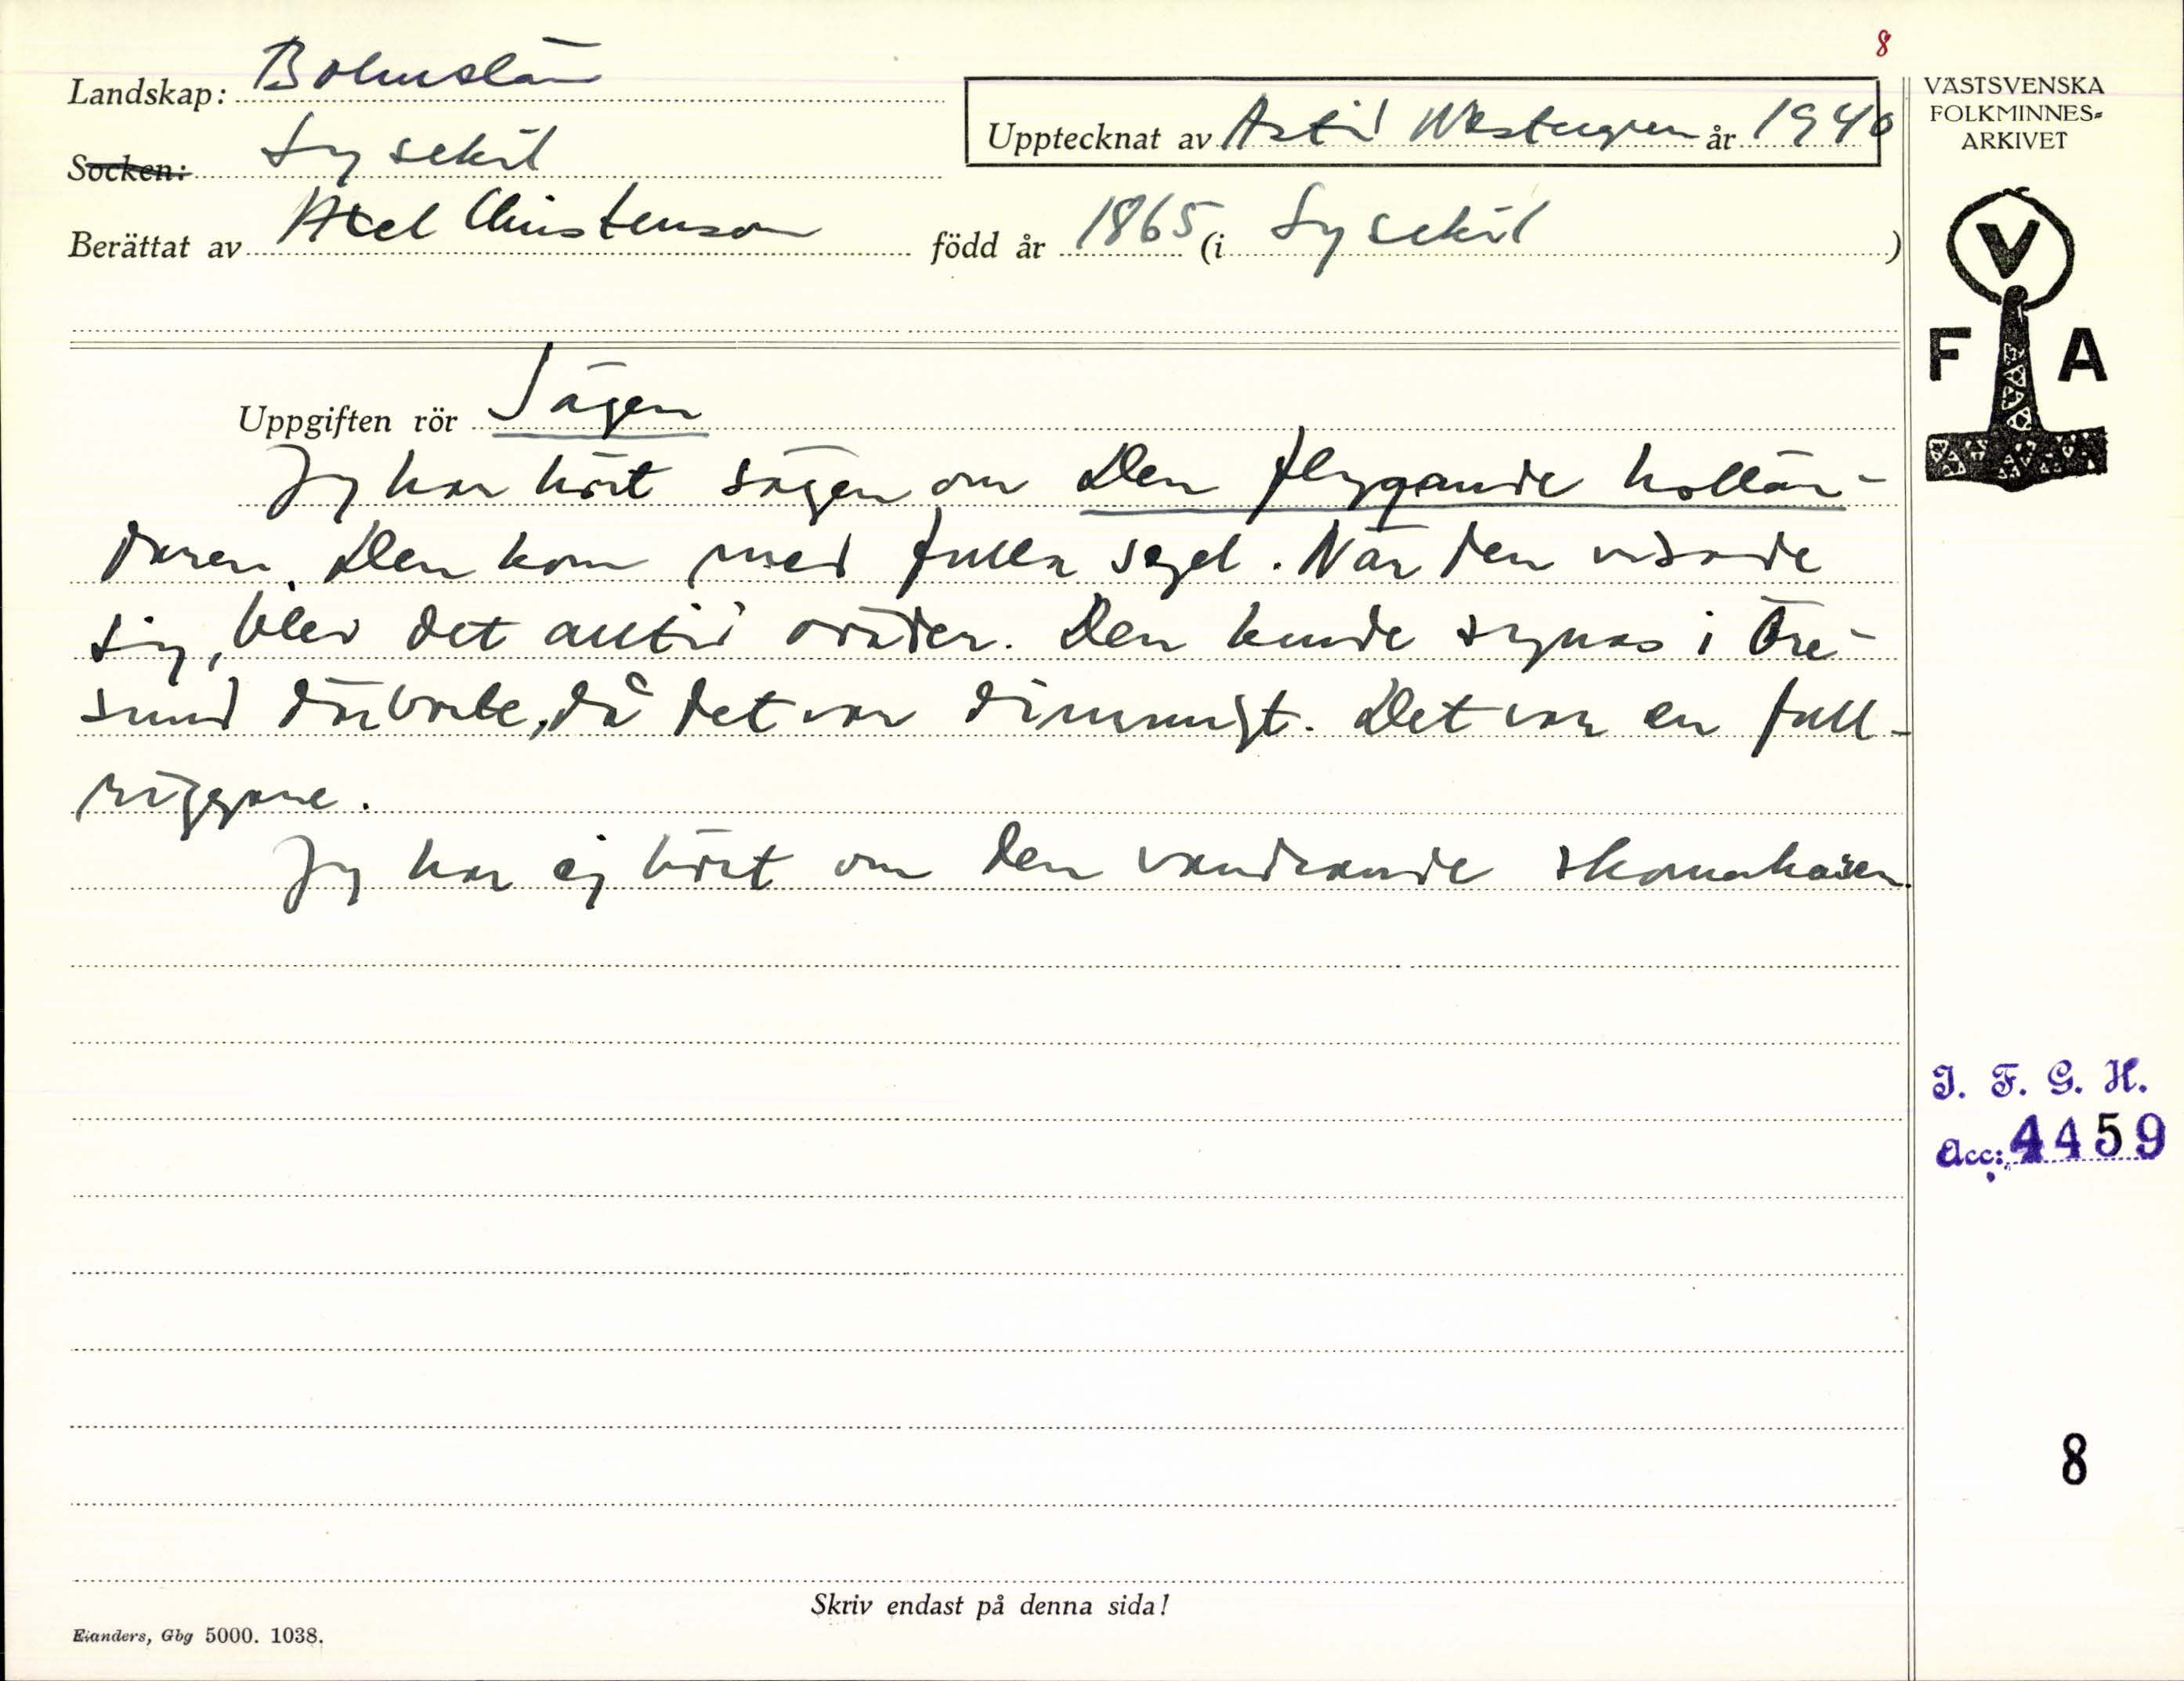 8
Landskap: Bohuslän
Socken: Lysekil
Upptecknat av Astrid Westergren år 1940
Berättat av Axel Christenson född år 1865 (i Lysekil)
VÄSTSVENSKA
FOLKMINNES=
ARKIVET
V
F A
Uppgiften rör Sägen
Jag har hört sägen om Den flygande hollän-
daren. Den kom med fulla segel. När den visade
sig, blev det alltid oväder. Den kunde synas i Öre-
sund därborte, då det var dimmigt. Det var en full-
riggare.
Jag har ej hört om den vandrande skomakaren.
I. F. G. H.
Acc: 4459
8
Skriv endast på denna sida!
Elanders, Gbg 5000. 1038.